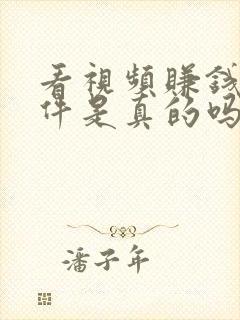 看視頻賺錢
件是真的吗
潘子年